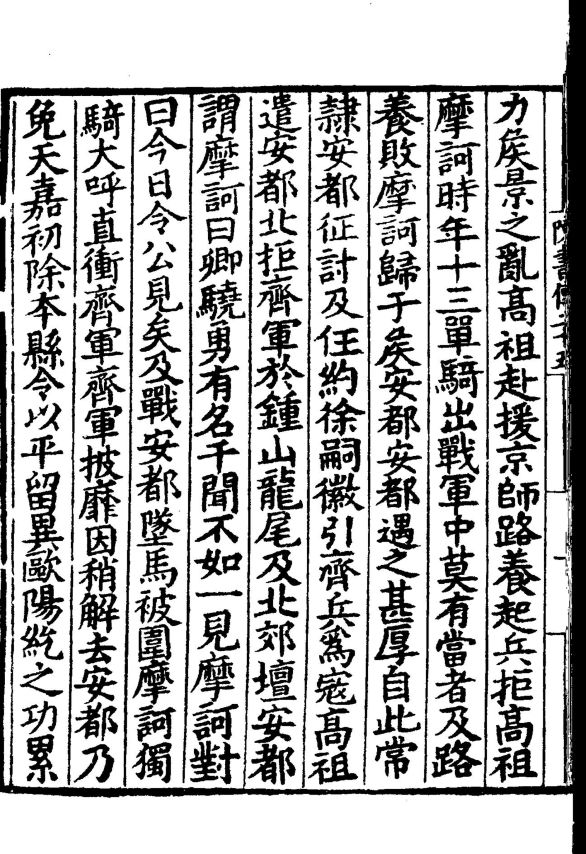 力矦景之亂髙祖赴援京師路養起兵拒髙祖
摩訶時年十三單騎出戰軍中莫有當者及路
養敗摩訶歸于矦安都安都遇之甚厚自此常
隷安都征討及任約徐嗣徽引齊兵爲寇髙祖
遣安都北拒齊軍於鍾山龍尾及北郊壇安都
謂摩訶曰卿驍勇有名千聞不如一見摩訶對
曰今日令公見矣及戰安都墜馬被圍摩訶獨
騎大呼直衝齊軍齊軍披靡因稍解去安都乃
免天嘉初除本縣令以平留異歐陽紇之功累